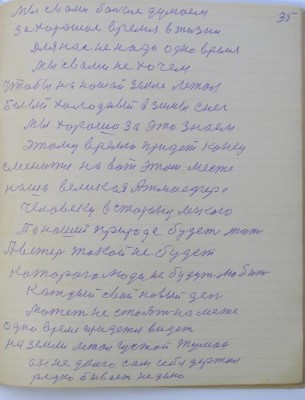 35
Мы с вами больше думаем
За хорошое время в жизни
Для нас не надо одно время
Мы с вами не хочем
Чтобы на нашой земле летал
Белый холодный зимы снег
Мы хорошо за это знаем
Этому время придёт конец
на вот этом месте
наша великая Атмосфера
Человеку в сторону
По нашей природе будет жить
Ветер такой не будет
Которого люди не будут любить
Каждый свой новый день
Может не стоять на месте
одно время придется видеть
на земли летом густой туман
он не долго сам себя держал
редко бывает не дено